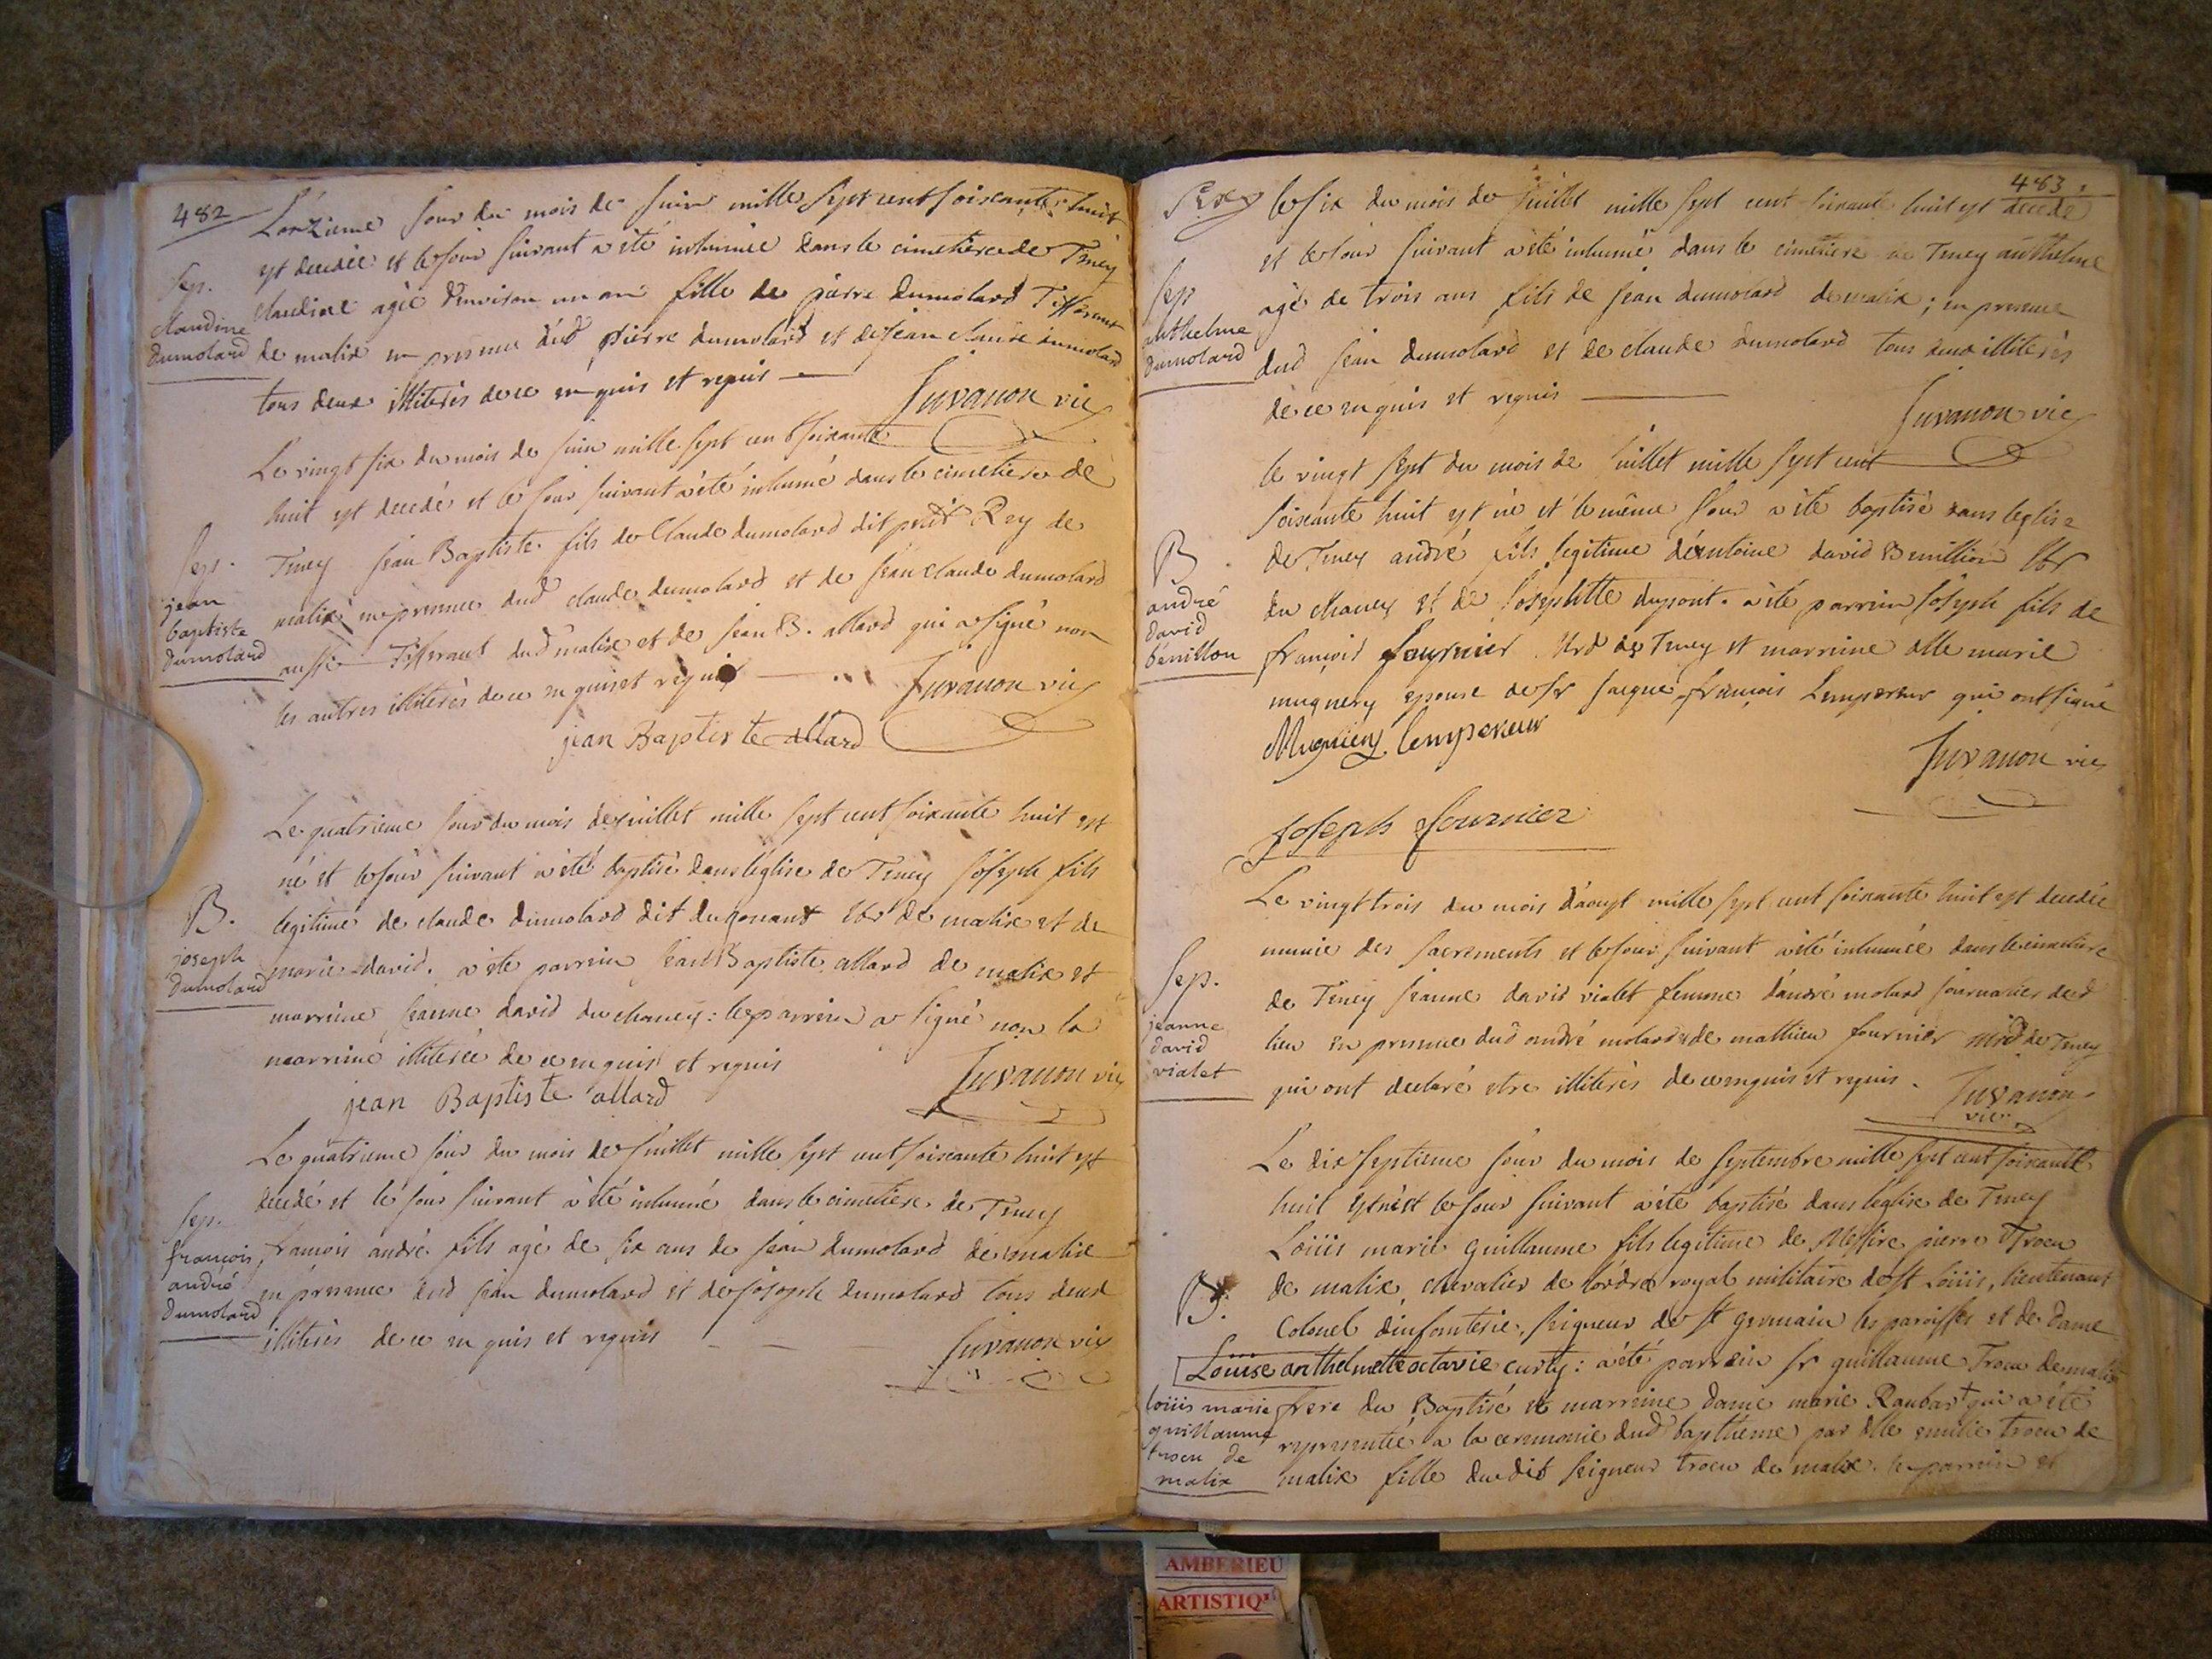 482
L'onzieme jour du mois de juin mille sept cent soixante huit
est decedée et le jour suivant a été inhumée dans le cimetiere de Teney
Sep.
claudine
dumolard
claudine agée d'environ un an fille de pierre dumolard Tisserant
de malix en presence dud pierre dumolard et de jean claude dumolard
tous deux illiterés de ce enquis et requis
Juvanon vic
Le vingt six du mois de juin mille sept cent soixante
huit est decedé et le jour suivant a été inhumé dans le cimetiere de
Sep.
jean
baptiste
dumolard
Teney jean Baptiste fils de Claude dumolard dit petit Rey de
malix en presence dud claude dumolard et de jean claude dumolard
aussi Tisserant dud malix et de jean B. allard qui a signé non
les autres illiterés de ce enquis et requis
Juvanon vic
jean Baptiste allard
Le quatrieme jour du mois de juillet mille sept cent soixante huit est
né et le jour suivant a été baptisé dans l'eglise de Teney joseph fils
B.
joseph
dumolard
legitime de claude dumolard dit de malix et de
marie david. a été parrein jean Baptiste allard de malix et
marreine jeanne david du chaney: le parrein a signé non la
marreine illiterée de ce enquis et requis
Juvanon vic
jean Baptiste allard
Le quatrieme jour du mois de juillet mille sept cent soixante huit est
decedé et le jour suivant a été inhumé dans le cimetiere de Teney
Sep.
françois
andré
dumolard
françois andré fils agé de six ans de jean dumolard de malix
en presence dud jean dumolard et de joseph dumolard tous deux
illiterés de ce enquis et requis
Juvanon vic
483
le six du mois de juillet mille sept cent soixante huit est decedé
et le jour suivant a été inhumé dans le cimetiere de Teney anthelme
Sep
anthelme
dumolard
agé de trois ans fils de jean dumolard de malix; en presence
dud jean dumolard et de claude dumolard tous deux illiterés
de ce enquis et requis
Juvanon vic
le vingt sept du mois de juillet mille sept cent
soixante huit est né et le même jour a été baptisé dans l'eglise
B.
andré
david
bénillon
de Teney andré fils legitime d'antoine david Benillion
du chaney et de josephtte dupont. a été parrein joseph fils de
françois fournier de Teney et marreine dlle marie
mugnery epouse de sr jacque françois Lempereur qui ont signé
Mugniery lempereur
Juvanon vic
joseph fournier
Le vingt trois du mois d'aoust mille sept cent soixante huit est decedée
munie des sacrements et le jour suivant a été inhumée dans le cimetiere
Sep.
jeanne
david
vialet
de Teney jeanne david vialet femme d'andré molard journalier dud
lieu en presence dud andré molard et de mathieu fournier de Teney
qui ont declaré etre illiterés de ce enquis et requis.
Juvanon
vic
Le dix septieme jour du mois de septembre mille sept cent soixante
huit est né et le jour suivant a été baptisé dans l'eglise de Teney
Loüis marie guillaume fils legitime de Messire pierre Trocu
B.
de malix, chevalier de l'ordre royal militaire de st Loüis, lieutenant
Colonel d'infanterie, seigneur de st germain les paroisses et de dame
Louise anthelmette octavie curty: a été parrein sr guillaume Trocu de malix
loüis marie
guillaume
trocu de
malix
frere du Baptisé et marreine dame marie Raubar qui a été
representée a la ceremonie dud baptheme par dlle emilie trocu de
malix fille dudit seigneur trocu de malix. le parrein et
AMBERIEU
ARTISTIQ